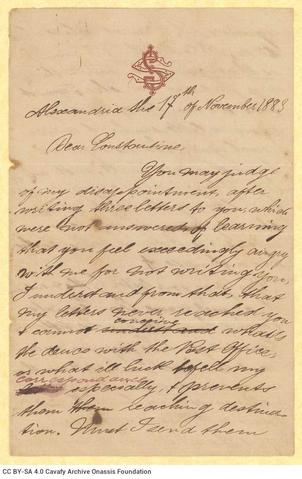 Alexandria the 17th of November 1883
Dear Constantine,
You may judge
of my disappointment, after
writing three letters to you, which
were not answered, of learning
that you feel exceedingly angry
with me for not writing you.
I understand from that, that
my letters never reached you
I cannot what's
the deuce with the Post Office,
or what ill luck my
correspondance
especially, & prevents
them them reaching destina-
tion. Must I send them
CC BY-SA 4.0 Cavafy Archive Onassis Foundation